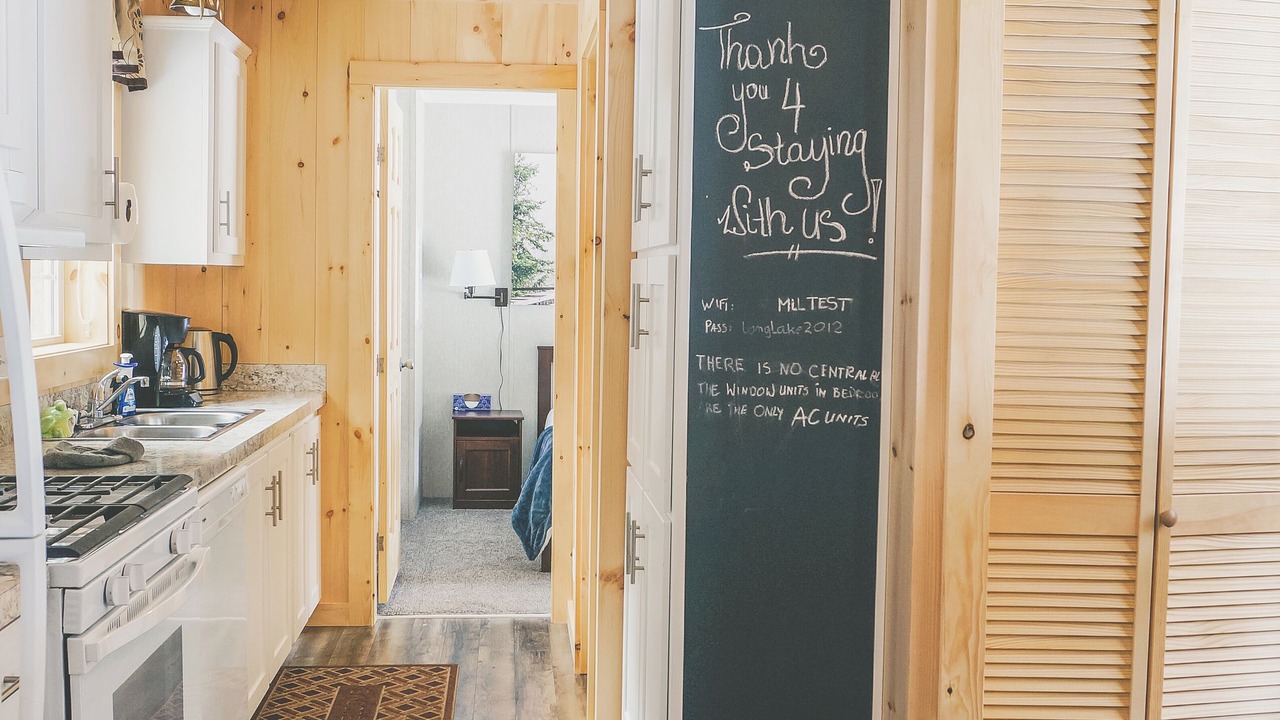 Thank
you 4
Staying
With us!
WIFI: MLLTEST
PASS: LongLake2012
THERE IS NO CENTRAL
THE WINDOW UNITS IN
ARE THE ONLY AC UNITS